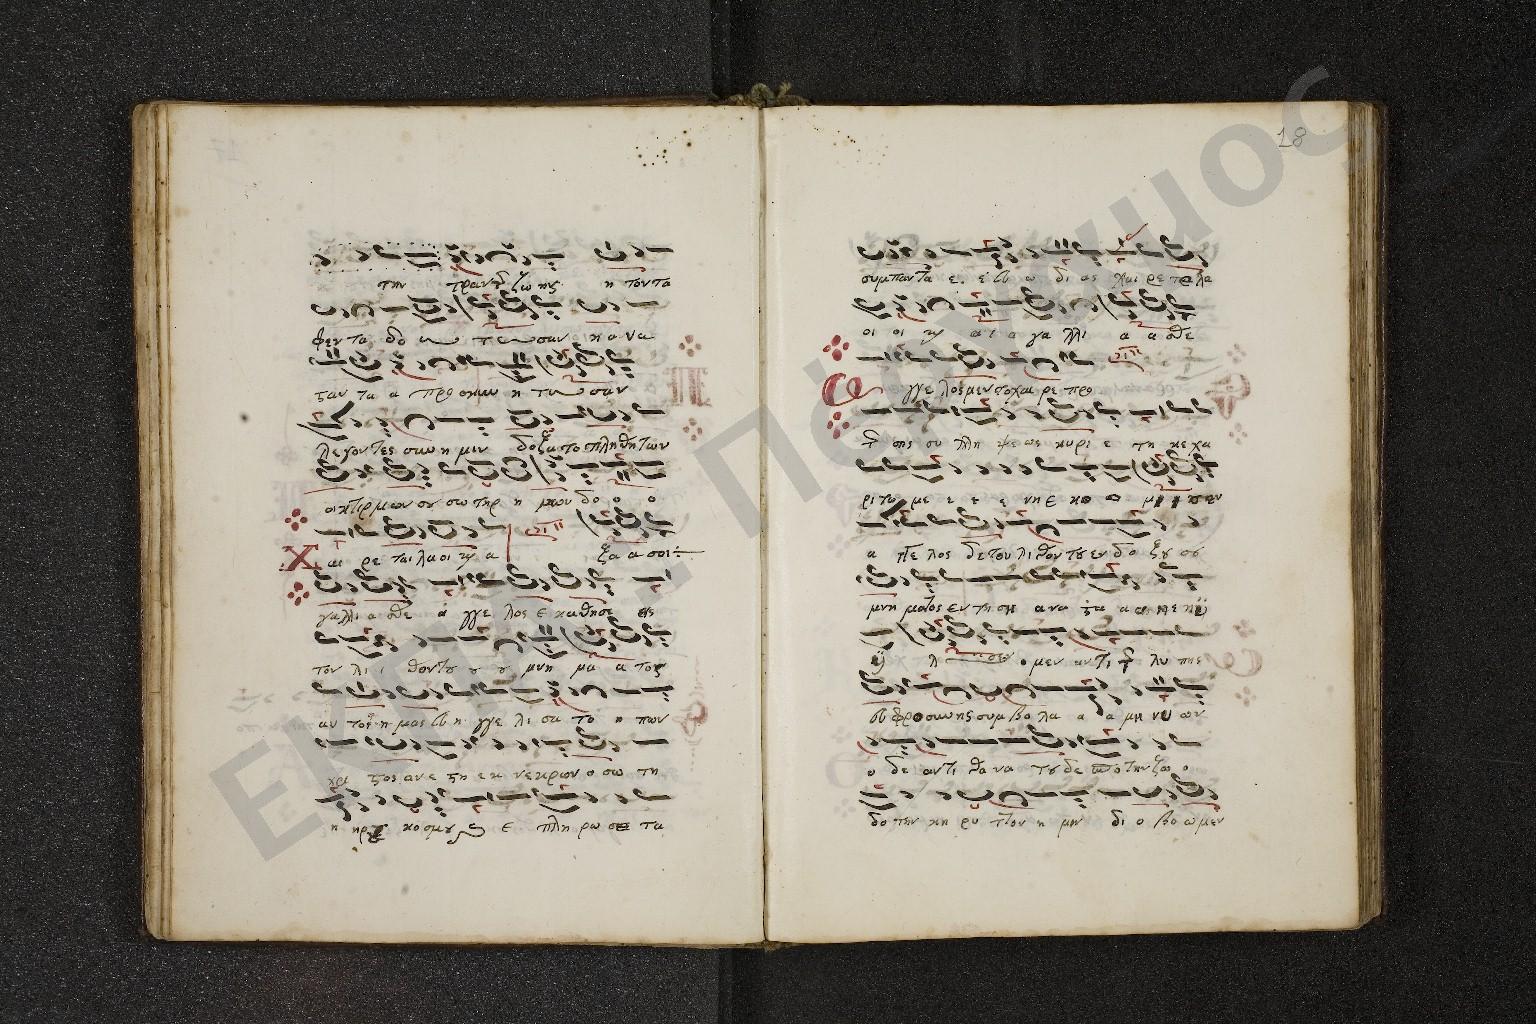 την τραν ζω ης η τον τα
φεν τα δο τε σαν η α να
ςαν τα α προ σκυν η τω σαν
λεγοντες συν η μιν δοξα το πληθη των
οι κτιρ μων σου σω τηρ η μων δο ο ο
χαι ρε ται λαοι κ α ξα α σοι
γαλλι α σθε α γγε λος ε κα θησεν εις
τον λι ι θον του ου ου μνη μα α τος
αυ τος η μας ευ η γγε λι σα το η πων
χρι ςος ανε ςη εκ νεκρων ο σω τηρ
κο σμου ε πλη ρω σε τα
18
συμπαντα ε ευ ω δι ας χαι ρε τε λα
οι οι κ α ι α γα λλι α α σθε
γγε λος μεν το χαι ρε προ
της σης συ λλη ψε ως κυρι ε τη κε χα
ριτω με ε ε ε νη ε κο ο μι
α γγε λος δε τον λι θον του εν δο ξου σου
μνη ματος εν τη ση ανα ςα α
ο μεν αντι της λυ πης
ευ φρο συνης συμ βο λα α α μη νυ ων
ο δε αντι θα να του δε σπο την ζω ο
δο την κη ρυ ττον η μιν δι ο βο ω μεν
ΕΚΠΑ - Πέργαμος